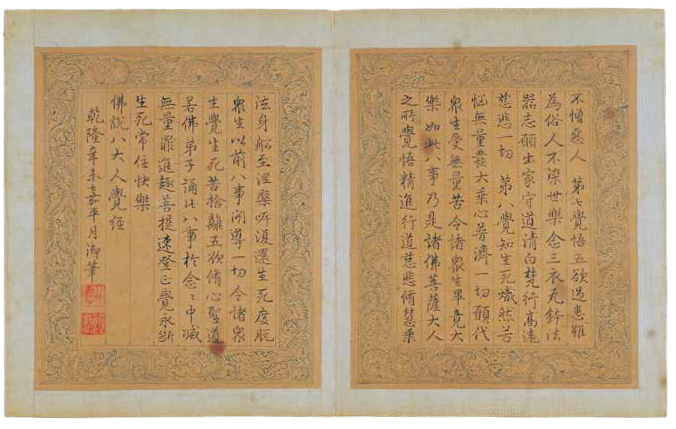 不憎惡人 第七覺悟五欲過患雖
為俗人不染世樂念三衣瓦鉢法
器志願出家守道清白梵行高遠
慈悲一切 第八覺知生死熾然苦
惱無量發大乘心普濟一切願代
眾生受無量苦令諸眾生畢竟大
樂 如此八事乃是諸佛菩薩大人
之所覺悟精進行道慈悲脩慧乘
法身船至涅槃所復還生死度脫
眾生以前八事開導一切令諸眾
生覺生死苦捨離五欲脩心聖道
若佛弟子誦此八事於念〻中滅
無量罪進趣菩提速登正覺永斷
生死常住快樂
佛說八大人覺經
乾隆辛未嘉平月御筆